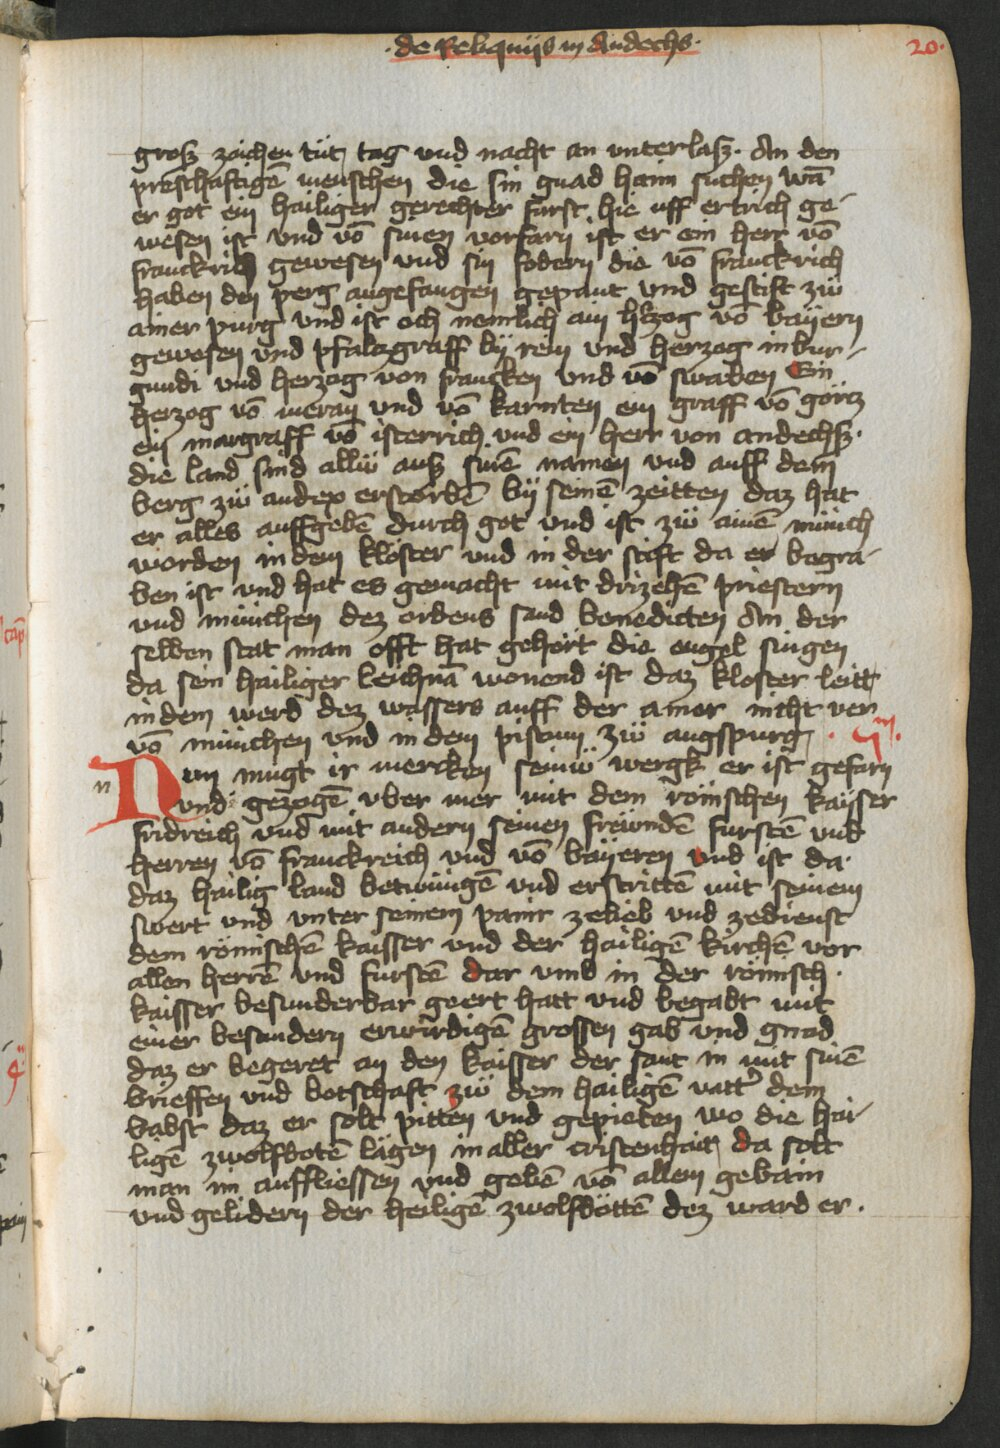 ·de Reliquijs in Andechs·
20·
grosz zaichen tüt, tag vnd nacht an vnterlasz· An den
presthaftigē menschen die sin gnad haim suchen wā
er got ein hailiger gerechter fürst hie uff ertrich ge-
wesen ist vnd vō sinen vorfarn ist er ein herr vō
franckrich gewesen vnd sin fodern die vō franckrich
haben den perg angefangen gepaut vnd gestift zü
ainer purg vnd ist och nemlich ain hʼzog vō bayern
gewesen vnd pfalczgraff by rein vnd herzog in bur-
gundi vnd herzog von francken vnd vō swaben Ein
herzog vō meran vnd vō karnten ein graff vō görcz
ein margraff vō isterrich vnd ein herr von andechsz·
die land sind allü ausz sinē namen vnd auff dem
berg zü andex erstorbē by seinē zeitten daz hat
er alles auffgebē durch got vnd ist zü ainē münch
worden in dem kloster vnd in der stift da er begra-
ben ist vnd hat es gemacht mit drizehē priestern
vnd münichen dez ordens sand benedicten An der
selben stat man offt hat gehört die engel singen
da sein hailiger leichnā wonend ist daz kloster leitt
in dem werd dez wassers auff der amer nicht ver
vō münichen vnd in dem pistum zü augspurg·
n
Nun mugt ir mercken seinü wergk er ist gefarn
vnd gezogē vber mer mit dem römschen kaysser
fridreich vnd mit andern seinen freündē furstē vnd
herren vō franckreich vnd vō bayeren vnd ist da
daz hailig land betwūngē vnd erstrittē mit seinem
swert vnd vnter seinem panir zelieb vnd zedienst
dem römischē kaisser vnd der hailigē kirchē vor
allen herrē vnd furstē dar vmb in der römisch
kaisser besunderbar geert hatt vnd begabt mit
einer besundern erwirdigē grossen gab vnd gnad
daz er begeret an den kaisser der sant in mit sinē
brieffen vnd botschaft zü dem hailigē vattʼ dem
babst daz er solt pitten vnd gepieten wo die hai-
ligē zwolfbotē lägen in aller cristenhait, da solt
man im auffsliessen vnd gebē vō allem gebain
vnd gelidern der heiligē zwolfböttē dez ward er·